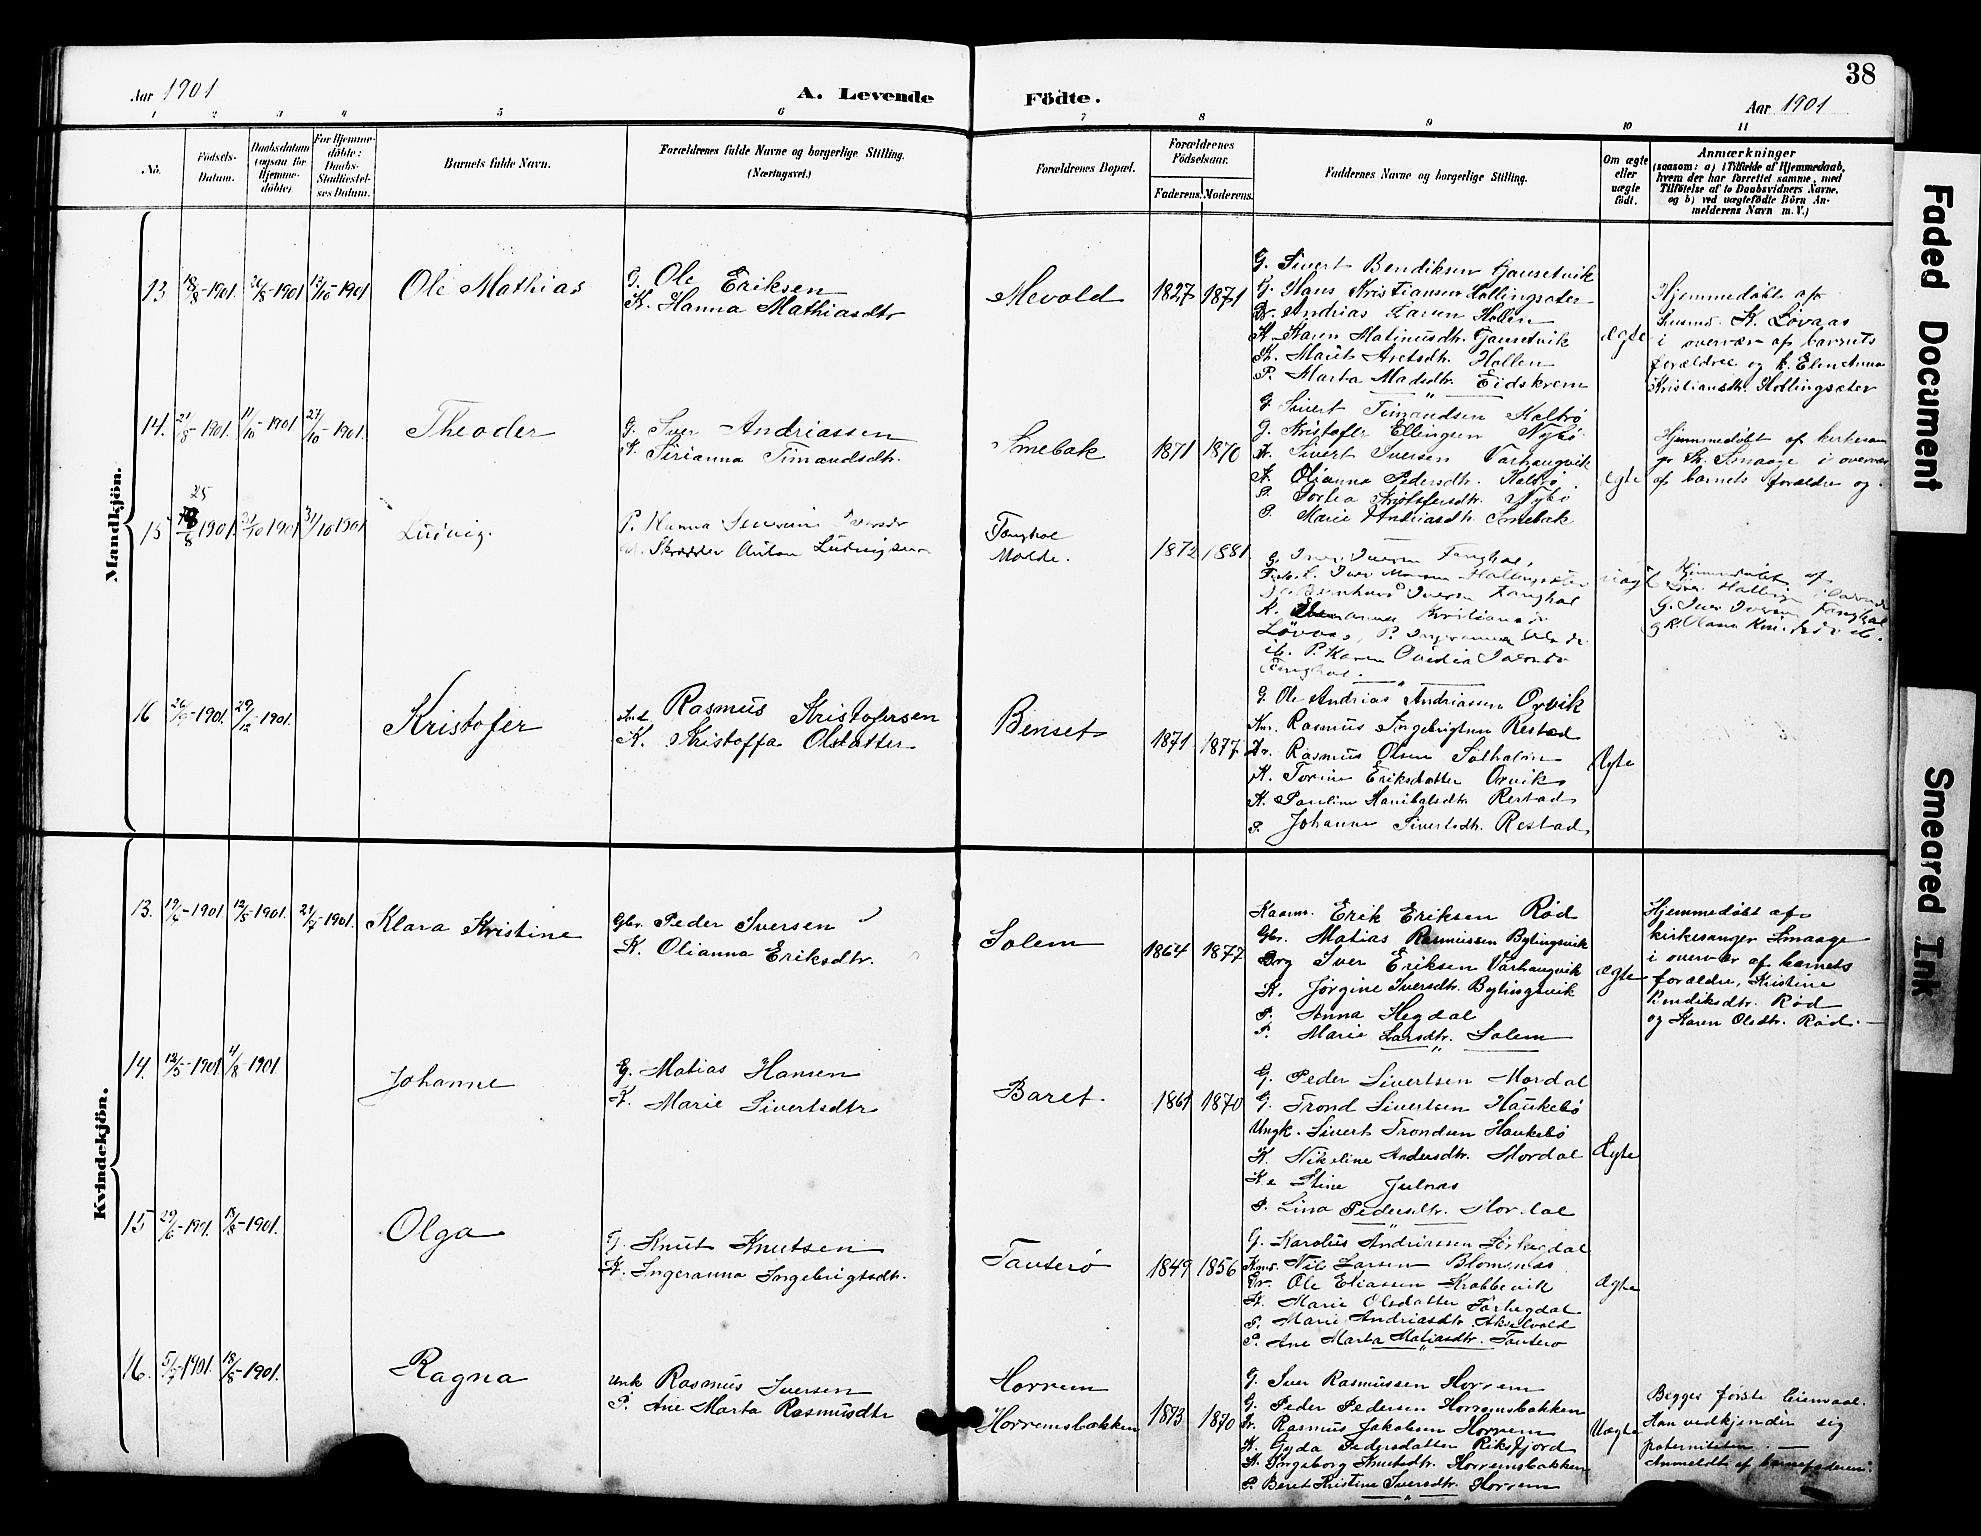 38
Aar 1901
A. Levende Födte.
Aar 1901
1 2 3 4 5 6 7 8 9 10 11
No.
Födsels-Datum.
Daabsdatum (ogsaa for Hjemme-döbte).
For Hjemme-döbte: Daabs-Stadfæstel-ses Datum.
Barnets fulde Navn.
Forældrenes fulde Navne og borgerlige Stilling.
(Næringsvei.)
Forældrenes Bopæl.
Forældrenes Födselsaar.
Faderens. Moderens.
Faddernes Navne og borgerlige Stilling.
Om ægte eller uægte födt.
Anmærkninger
(saasom: a) i Tilfælde af Hjemmedaab,
hvem der har forrettet samme, med
Tilföielse af to Daabsvidners Navne,
og b) ved uægtefödte Börn An-
melderens Navn m. V.)
Mandkjön.
13 18/8-1901. 20/8-1901 13/10-1901
Ole Mathias
G. Ole Eriksen
K. Hanna Mathiasdtr
Mevold
1827 1871
G. Sivert Bendiksen Gjausetvik
G. Hans Kristiansen Hollingsæter
Gr. Andrias Larsen Hollen
K. Karen Matinusdtr. Gjausetvik
K. Marit Aretsdtr. Hollen
P. Marta Madsdtr. Eidskrem
ægte
Hjemmedøbt af
K. Løvaas
i overvær af barnets
forældre og k. Elen Anna
Kristiansdtr. Hollingsæter
14. 21/8-1901. 11/10-1901 27/10-1901.
Theoder
G. Iver Andriassen
K. Sirianna Timandsdtr.
Smebak
1871 1870
G. Sivert Timandsen Kalbø
G. Kristofer Ellingsen Nybø
Sivert Iversen Varhaugvik
K. Olianna Pedersdtr. Kalbø
P. Dortea Kristofersdtr. Nybø
P. Marie Andriasdtr. Smebak
ægte
Hjemmedøbt af kirkesan
ger Smaage i overvær
af barnets forældre og
15 25/8 1901. 31/10 1901 31/10 1901
Ludvig.
P. Hanna Severine Iversdr
Skrædder Anton Ludvigsen
Fanghol
Molde.
1872 1881
G. Iver Iversen Fanghol,
Iversen Fanghol
K.
Løvaas, P.
P. Karen Ovidia Iversdr
Fanghol.
uægte
Hjemmedøbt af
G. Iver Iversen Fanghol
16 26/9-1901. 29/12-1901.
Kristofer
Rasmus Kristofersen
K. Kristoffa Olsdatter
Benset
1871 1877
G. Ole Andrias Andriassen Orvik
Rasmus Ingebrigtsen Restad
Gr. Rasmus Olsen Solholm
K. Torine Eriksdatter Orvik
K. Pauline Hanibalsdtr Restad
P. Johanne Sivertsdtr. Restad
Ægte
Kvindekjön.
13. 19/4-1901. 12/5-1901. 21/7-1901.
Klara Kristine
Gbr. Peder Iversen
K. Olianna Eriksdtr.
Solem
1864 1877
Kaarm. Erik Eriksen Rød
Gbr. Matias Rasmussen Bylingsvik
Iver Eriksen Varhaugvik
K. Jørgine Iversdtr. Bylingsvik
P. Anna Hegdal
P. Marie Larsdtr. Solem
ægte
Hjemmedøbt af
kirkesanger Smaage
i overvær af barnets
forældre, Kristine
Bendiksdtr. Rød
og Karen Olsdtr. Rød.
14. 13/5-1901 4/8-1901
Johanne
G. Matias Hansen
K. Marie Sivertsdtr
Baret.
1861 1870
G. Peder Sivertsen Mordal
G. Trond Sivertsen Haukebø
Ungk. Sivert Trondsen Haukebø
K. Nikoline Andersdtr. Mordal
K. Stine Julnes
P. Lina Pedersdtr. Mordal
Ægte
15 29/6-1901. 18/8-1901.
Olga
G. Knut Knutsen
K. Ingeranna Ingebrigtsdtr.
Tauterø
1849 1856
G. Karolus Andriassen Sørhegdal
Nils Larsen Blomsnes
Gr. Ole Eliassen Krabbevik
K. Marie Olsdatter Sørhegdal
P. Marie Andriasdtr. Akselvold
P. Ane Marta Matiasdtr. Tauterø
Ægte
16. 5/7-1901. 18/8-1901.
Ragna
Unk Rasmus Iversen
P. Ane Marta Rasmusdtr
Horrem
Horremsbakken
1873 1870
G. Iver Rasmussen Horrem
G. Peder Pedersen Horremsbakken
Gr. Rasmus Jakobsen Horrem
K. Gyda Pedersdatter Riksfjord
K. Ingeborg Knutsdtr. Horremsbakken
P. Beret Kristine Iversdtr. Horrem
Uægte
Begges første leiermaal.
Han vedkjender sig
paterniteten.
Anmeldt af barnefaderen.
Faded Document
Smeared Ink